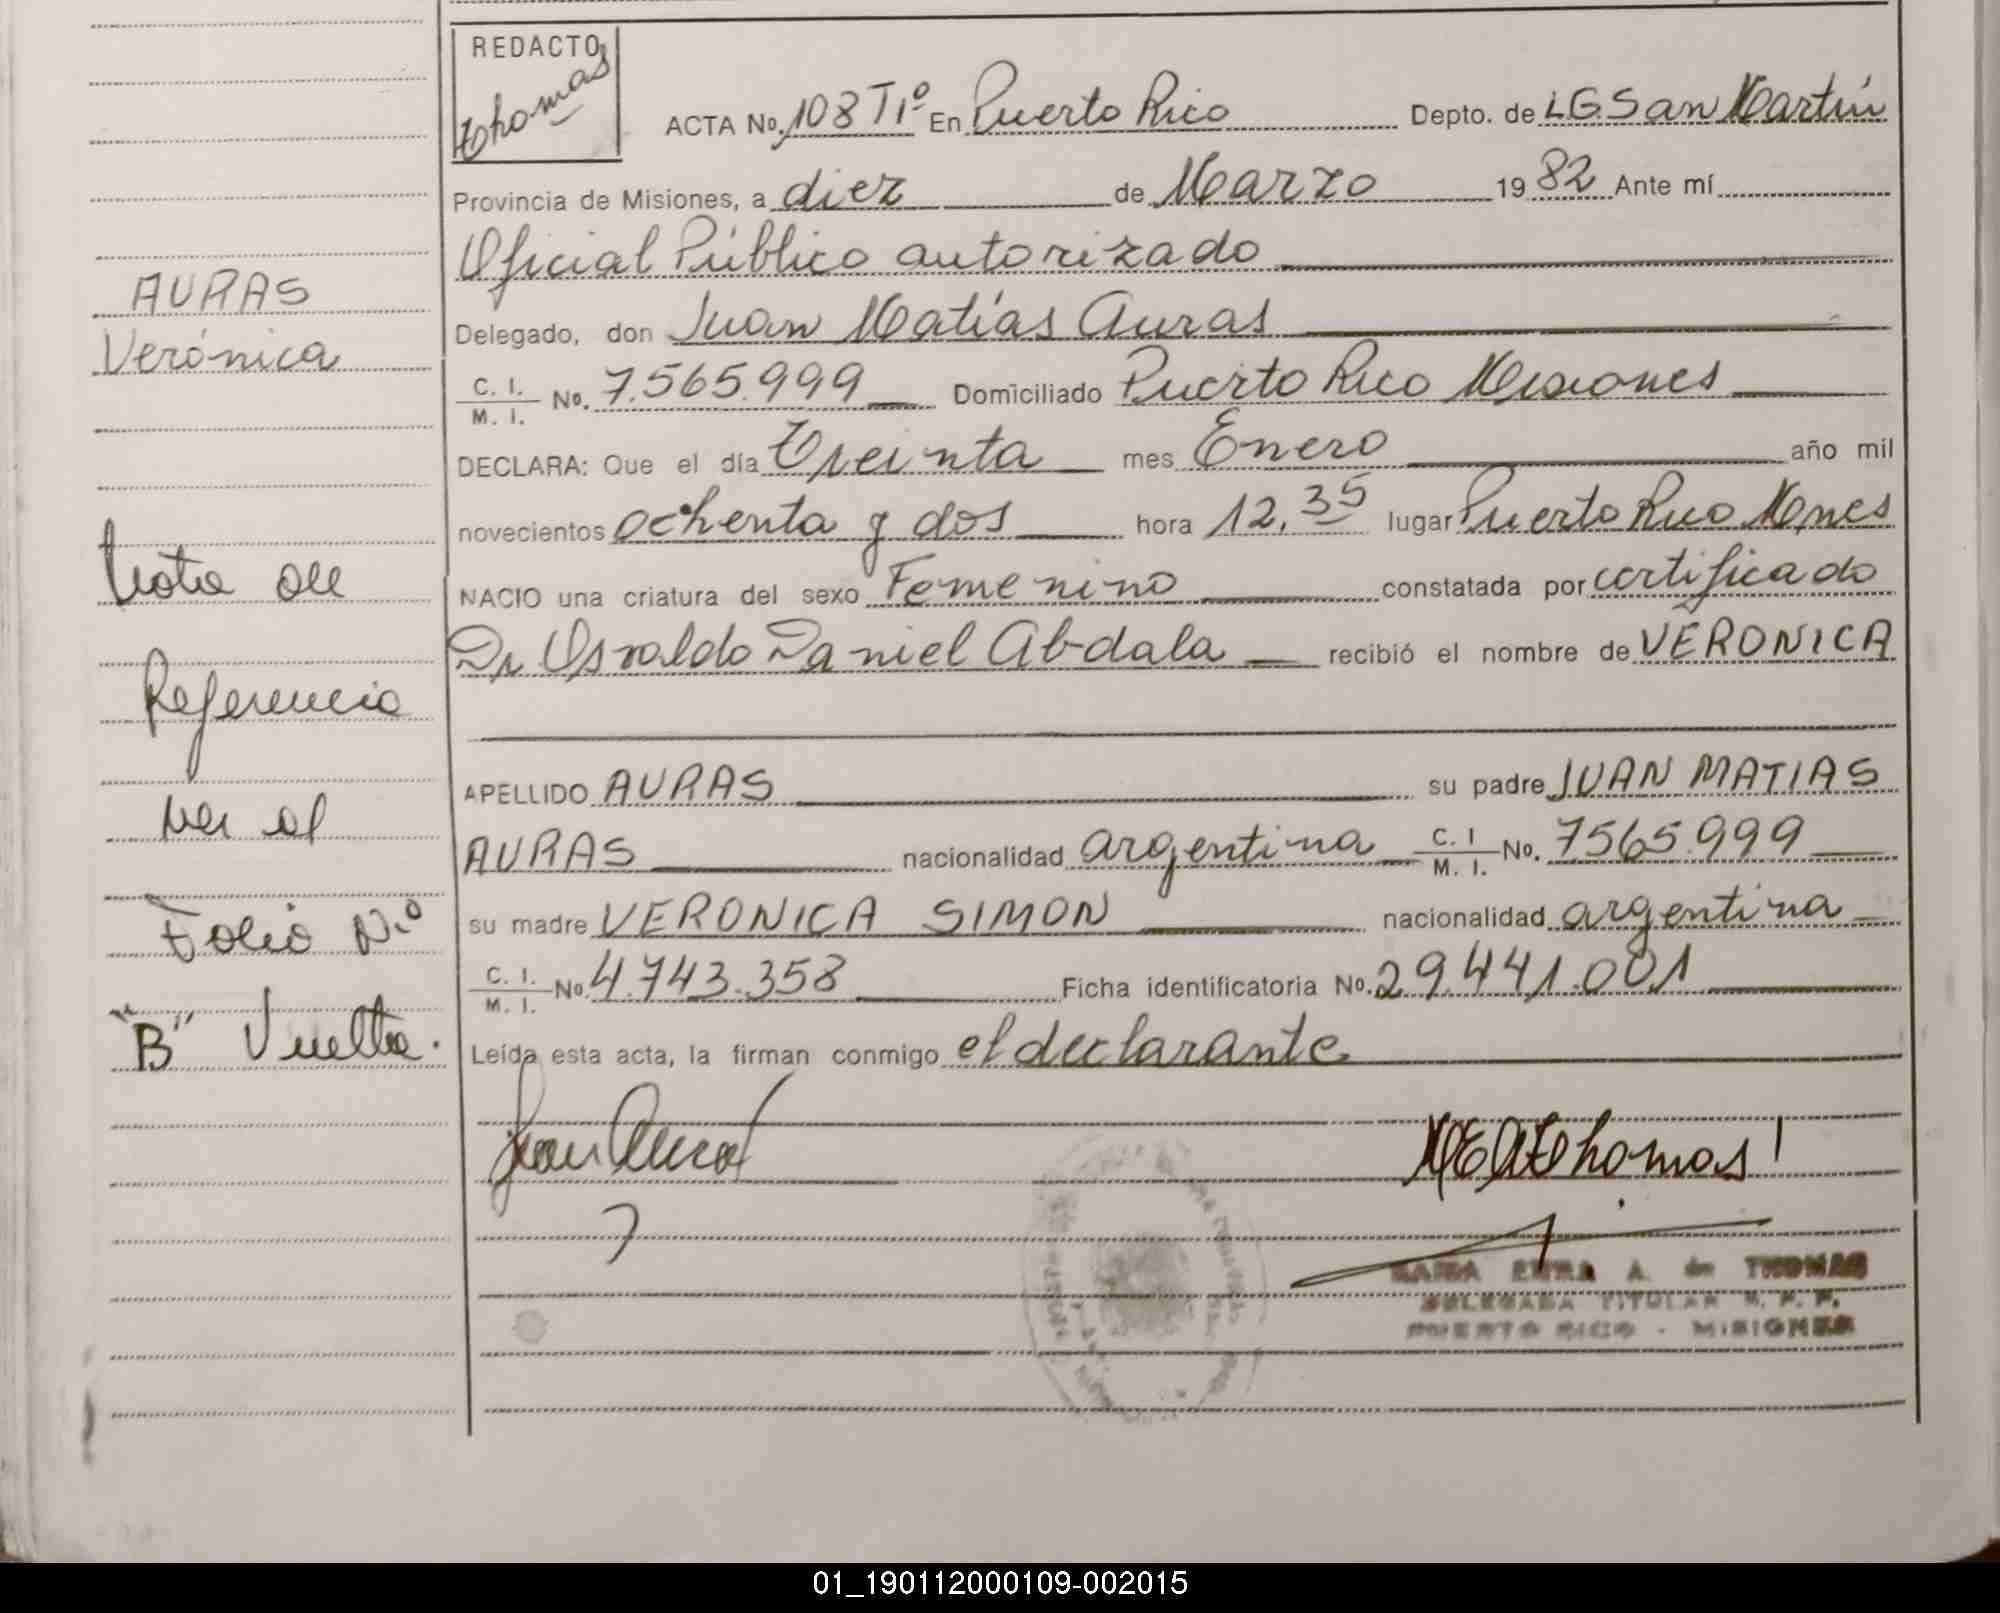 REDACTO
Thomas
ACTA No. 108 T1º En Puerto Rico Depto. de LG San Martín
Provincia de Misiones, a diez de Marzo 1982 Ante mí
Oficial Público autorizado
AURAS
Delegado, don Juan Matías Auras
Verónica
C. I.
M. I. No. 7.565.999 Domiciliado Puerto Rico Misiones
DECLARA: Que el día Treinta mes Enero año mil
novecientos ochenta y dos hora 12,35 lugar Puerto Rico Mnes
Nota de
NACIO una criatura del sexo Femenino constatada por certificado
Dr Osvaldo Daniel Abdala recibió el nombre de VERONICA
Referencia
APELLIDO AURAS su padre JUAN MATIAS
ver al
AURAS nacionalidad argentina C. I
M. I. No. 7565.999
Folio N.º
su madre VERONICA SIMON nacionalidad argentina
C. I.
M. I. No 4.743.358 Ficha identificatoria No. 29.441.001
"B" Vuelta.
Leída esta acta, la firman conmigo el declarante
Juan Auras
MEA Thomas
MARIA ELENA A. de THOMAS
DELEGADA TITULAR R. P. P.
PUERTO RICO - MISIONES
01_190112000109-002015